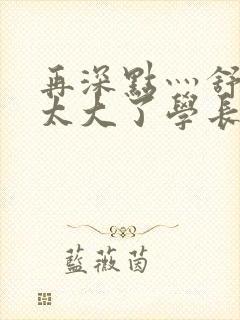 再深點灬舒
太大了學長
藍薇茵